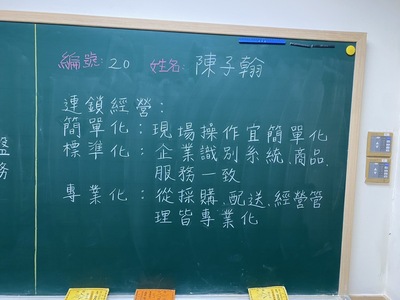 編號：20 姓名：陳子翰
連鎖經營：
簡單化：現場操作宜簡單化
標準化：企業識別系統、商品、
服務一致
專業化：從採購、配送、經營管
理皆專業化
盤
務